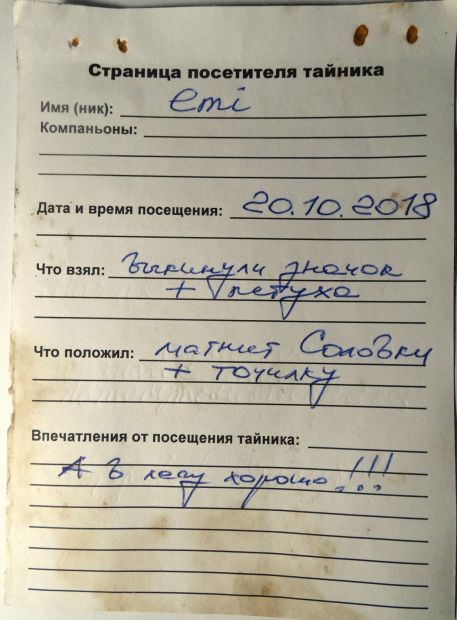 Страница посетителя тайника
Имя (ник): emi
Компаньоны:
Дата и время посещения: 20.10.2018
Что взял: выкинули значок
+ петуха
Что положил: магнит Соловки
+ точилку
Впечатления от посещения тайника:
А в лесу хорошо!!!